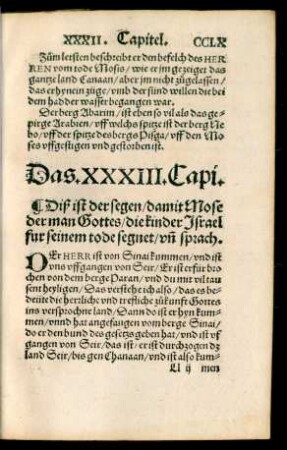 XXXII. Capitel. CCLX
Zům letsten beschreibt er den befelch des HER
REN vom tode Mosis / wie er jm gezeiget das
gantze land Canaan / aber jm nicht zůgelassen /
das er hynein züge / vmb der sünd willen die bei
dem hadder wasser begangen war.
Der berg Abarim / ist eben so vil als das ge-
pirge Arabien / vff welchs spitze ist der berg Ne
bo / vff der spitze des bergs Pisga / vff den Mo
ses vffgestigen vnd gestorben ist.
Das. XXXIII. Capi.
¶ Diß ist der segen / damit Mose
der man Gottes / die kinder Israel
fur seinem tode segnet / vñ sprach.
DEr HERR ist von Sinai kummen / vnd ist
vns vffgangen von Seir / Er ist erfür bro
chen von dem berge Paran / vnd du mit vil tau
sent heyligen / Das verstehe ich also / das es be
deüte die herrliche vnd trefliche zůkunfft Gottes
ins versprochne land / Dann do ist er hyn kum-
men / vnnd hat angefangen vom berge Sinai /
do er den bund des gesetzs geben hat / vnd ist vf
gangen von Seir / das ist / er ist durchzogen dz
land Seir / bis gen Chanaan / vnd ist also kum-
Ll ij men